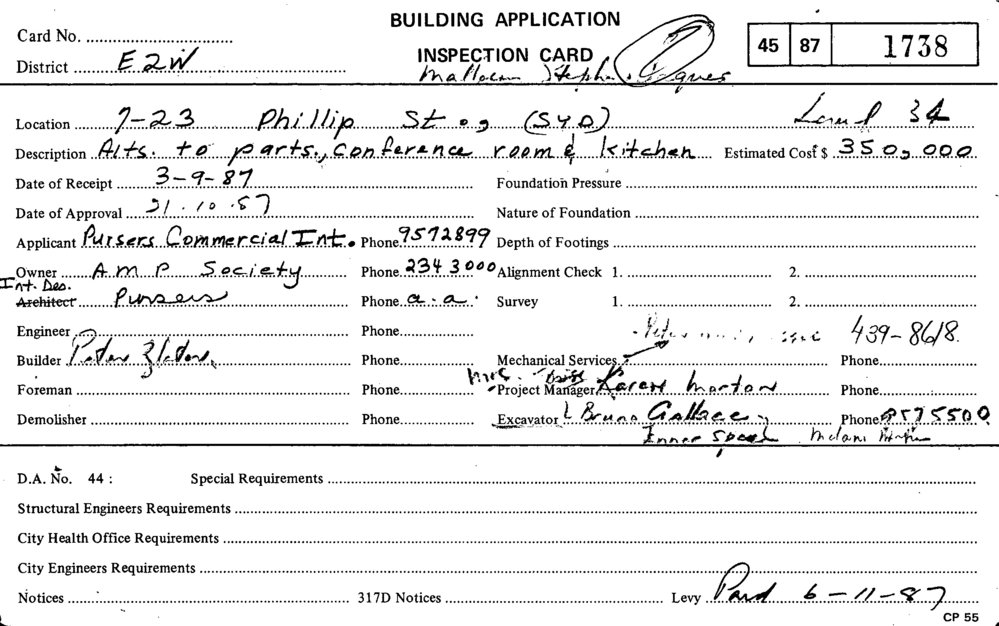 BUILDING APPLICATION
Card No.
INSPECTION CARD
45 87 1738
District E2W
Location 7-23 Phillip St., (SYD) 34
Description Alts. to parts., conference room & kitchen Estimated Cost $ 350,000
Date of Receipt 3-9-87 Foundation Pressure
Date of Approval 21.10.87 Nature of Foundation
Applicant Pursers Commercial Int. Phone 9572899 Depth of Footings
Owner A M P Society Phone 234 3000 Alignment Check 1. 2.
Int. Des.
Architect Pursers Phone a.a. Survey 1. 2.
Engineer Phone 439-8618.
Builder Peter Phone Mechanical Services Phone
Foreman Phone Project Manager Karen Morton Phone
Demolisher Phone Excavator Bruno Phone 9575500
Inner Space
D.A. No. 44: Special Requirements
Structural Engineers Requirements
City Health Office Requirements
City Engineers Requirements
Notices 317D Notices Levy Paid 6-11-87
CP 55